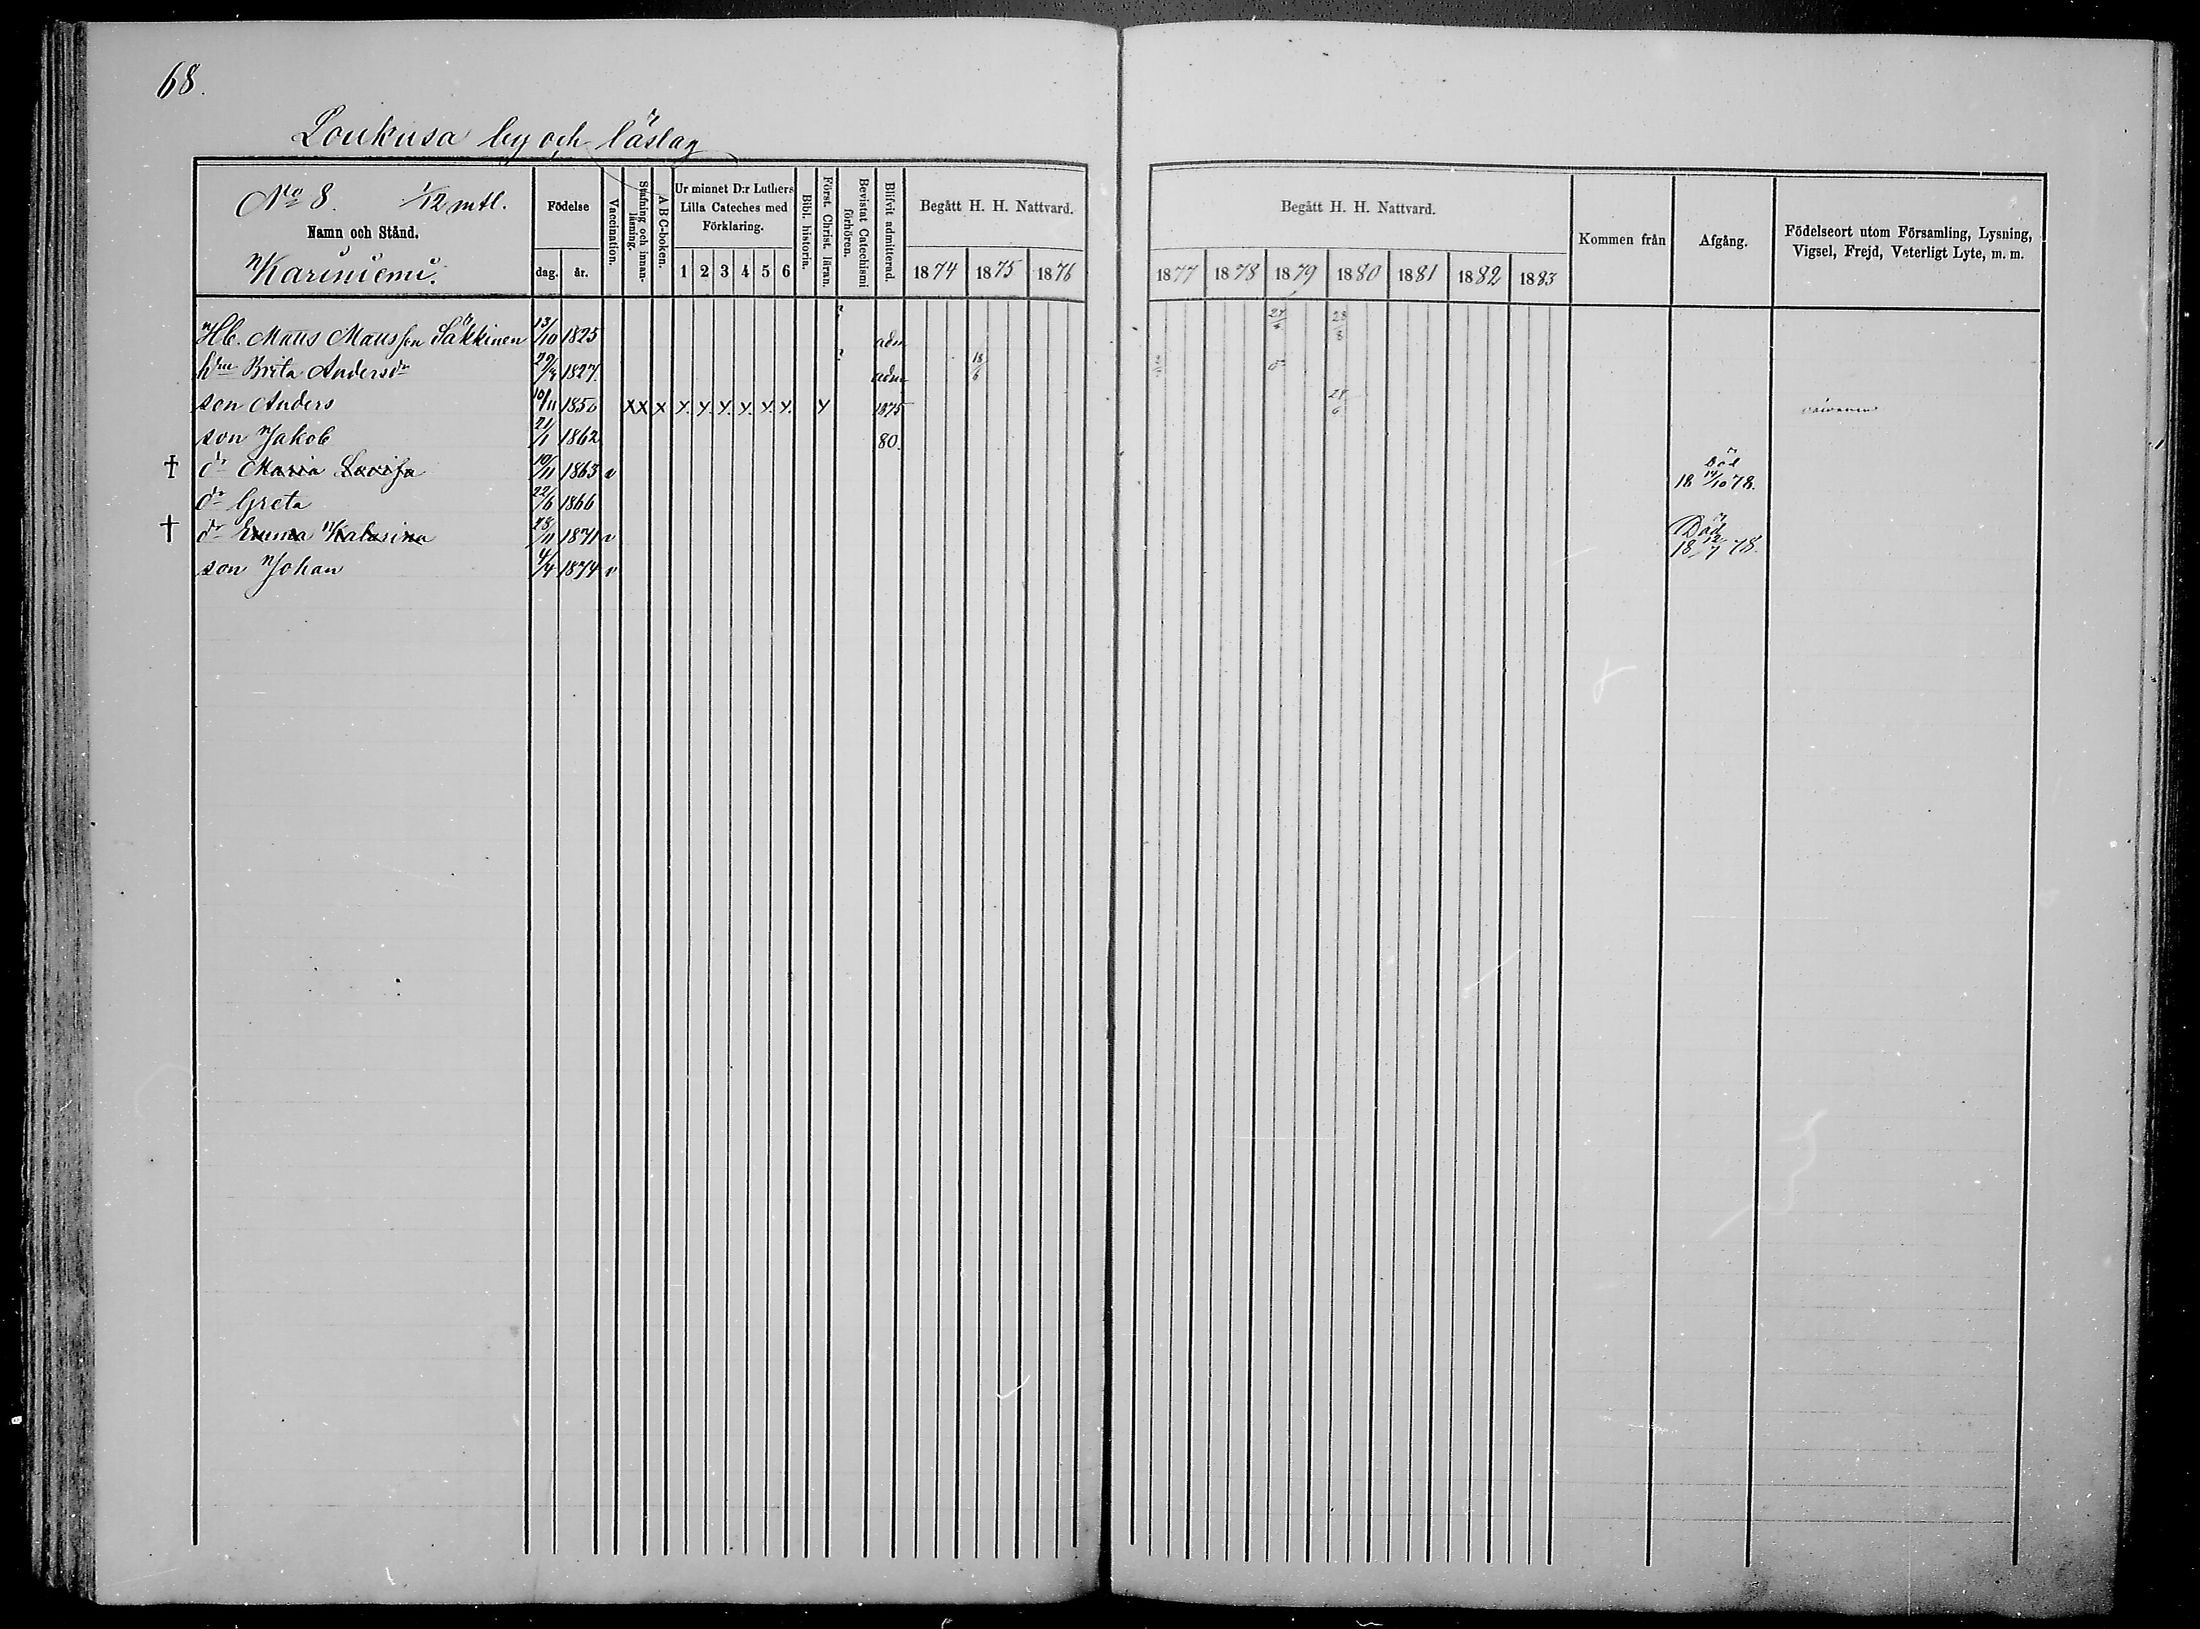 68.
Loukusa by och läslag
No 8. 1/12 mtl.
Namn och Stånd.
Kariniemi.
Födelse
dag. år.
Vaccination.
Stafning och innan-läsning.
ABC-boken.
Ur minnet D:r Luthers Lilla Cateches med Förklaring.
1 2 3 4 5 6
Bibl. historia.
Först. Christ. läran.
Bevistat Catechismi förhören.
Blifvit admitterad.
Begått H. H. Nattvard.
1874 1875 1876
Begått H. H. Nattvard.
1877 1878 1879 1880 1881 1882 1883
Kommen från
Afgång.
Födelseort utom Församling, Lysning, Vigsel, Frejd, Veterligt Lyte, m. m.
Hb. Matts Mattsson Säkkinen 13/10 1825 adm 28/8
hu Brita Andersdr 29/4 1827 adm 18/6
son Anders 10/11 1856 X X x x x x x x x x 1875
son Jakob 21/1 1862 80.
† dr Maria Lovisa 10/11 1863 v Död 18 14/10 78.
dr Greta 22/6 1866
† dr Emma Katarina 28/11 1871 v Död 18 12/7 78.
son Johan 4/4 1874 v